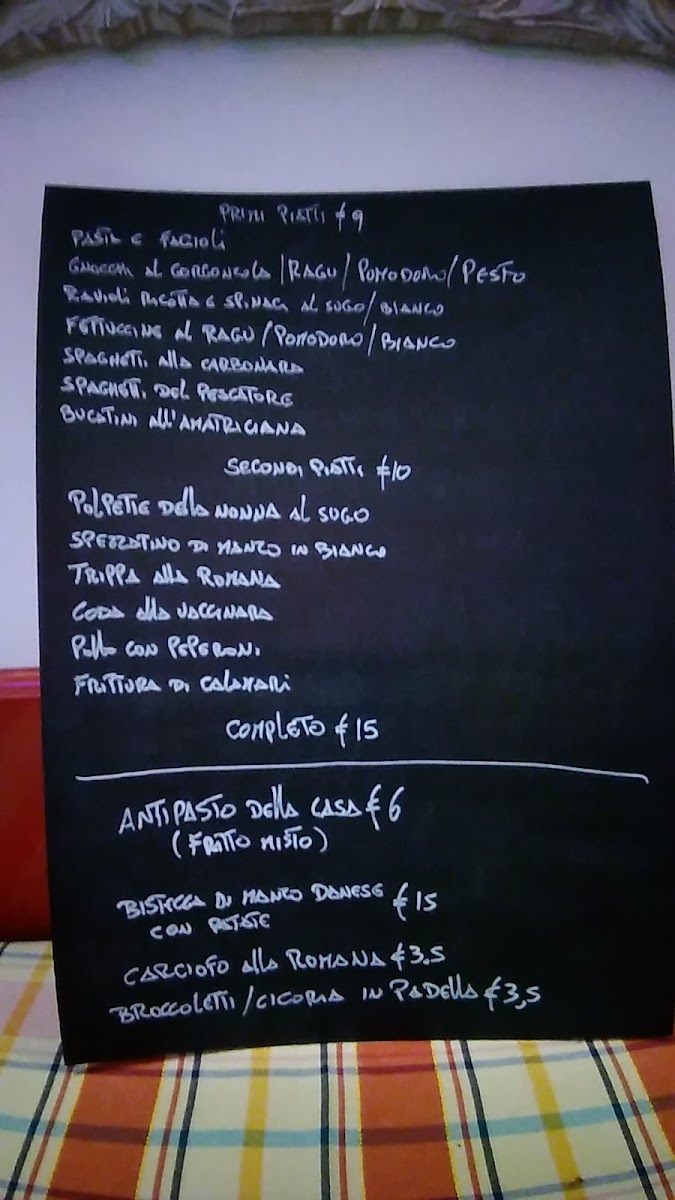 PRIMI PIATTI €9
PASTA E FAGIOLI
GNOCCHI AL GORGONZOLA/RAGU/POMODORO/PESTO
RAVIOLI RICOTTA E SPINACI AL SUGO/BIANCO
FETTUCCINE AL RAGU/POMODORO/BIANCO
SPAGHETTI ALLA CARBONARA
SPAGHETTI DEL PESCATORE
BUCATINI ALL'AMATRICIANA
SECONDI PIATTI €10
POLPETTE DELLA NONNA AL SUGO
SPEZZATINO DI MANZO IN BIANCO
TRIPPA ALLA ROMANA
CODA ALLA VACCINARA
POLLO CON PEPERONI
FRITTURA DI CALAMARI
COMPLETO €15
ANTIPASTO DELLA CASA €6
(FRITTO MISTO)
BISTECCA DI MANZO DANESE €15
CON PATATE
CARCIOFO ALLA ROMANA €3.5
BROCCOLETTI/CICORIA IN PADELLA €3,5